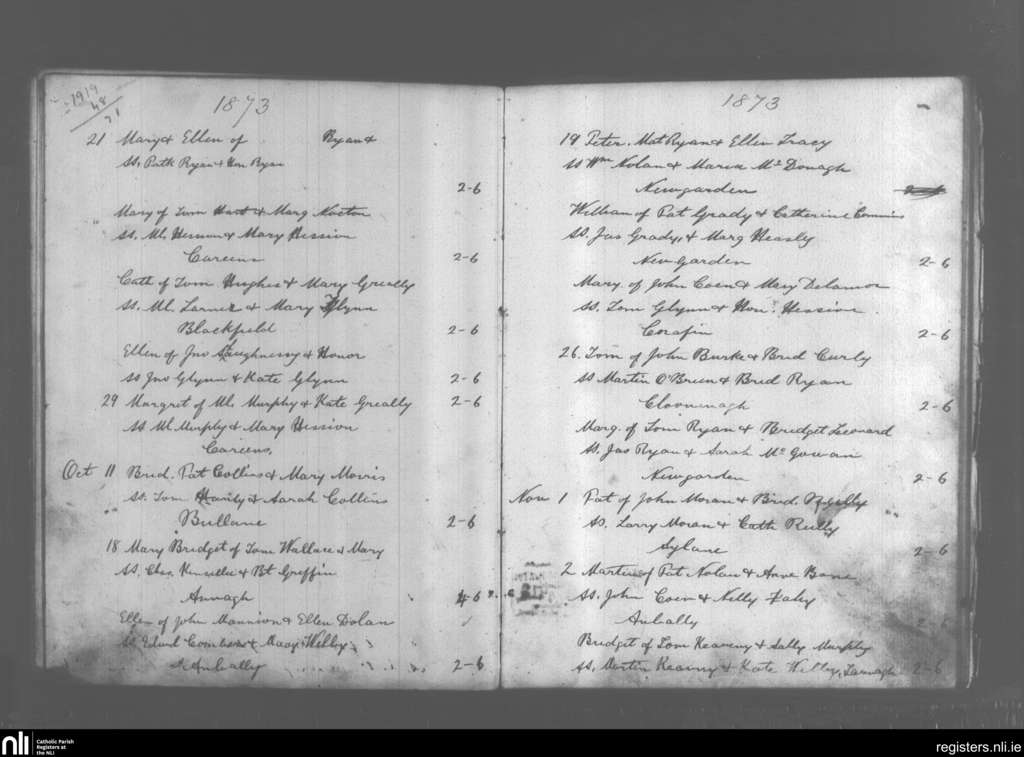 1919
48
71
1873
21 Mary & Ellen of Ryan &
SS. Patk Ryan & Hon Ryan
2-6
Mary of Tom Hart & Marg Nocton
SS. Ml. Hernon & Mary Hession
Careens 2-6
Cath of Tom Hughes & Mary Greally
SS. Ml. Larner & Mary Glynn
Blackfield 2-6
Ellen of Jno Shaughnessy & Honor
SS Jno Glynn & Kate Glynn 2-6
29 Margret of Ml. Murphy & Kate Greally 2-6
SS Ml Murphy & Mary Hession
Careens,
Oct 11 Brid. Pat Collins & Mary Morris
SS. Tom & Sarah Collins
Bullane 2-6
18 Mary Bridget of Tom Wallace & Mary
SS. Chas. Kinsella & Bt Griffin
Annagh 4-6
Ellen of John Mannion & Ellen Dolan
SS. Edwd & Mary
Anbally 2-6
1873
19 Peter. Mat Ryan & Ellen Tracy
SS Wm Nolan & Maria McDonagh
Newgarden
William of Pat Grady & Catherine Commins
SS. Jas Grady, & Marg Heasly
New garden 2-6
Mary of John Coen & Mary Delamore
SS. Tom Glynn & Hon. Hession
Corofin 2-6
26. Tom of John Burke & Brid Curly
SS Martin O'Brien & Brid Ryan
Cloonenagh 2-6
Marg. of Tom Ryan & Bridget Leonard
SS. Jas Ryan & Sarah McGowan
Newgarden 2-6
Nov 1 Pat of John Moran & Brid.
SS. Larry Moran & Cath Reilly
Sylane 2-6
2 Martin of Pat Nolan & Anne Bane
SS. John Coen & Nelly Fahy
Anbally 2-6
Bridget of Tom Keaveny & Sally Murphy
SS. Martin Keaveny & Kate 2-6
nli
Catholic Parish
Registers at
the NLI
registers.nli.ie